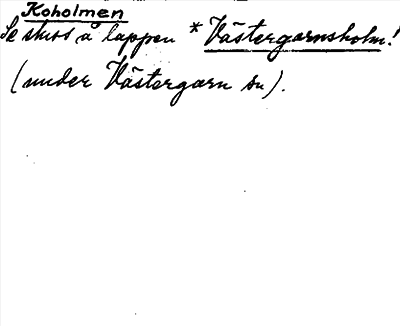 Koholmen
Se skiss å lappen *Västergarnsholm!
(under Västergarn sn).